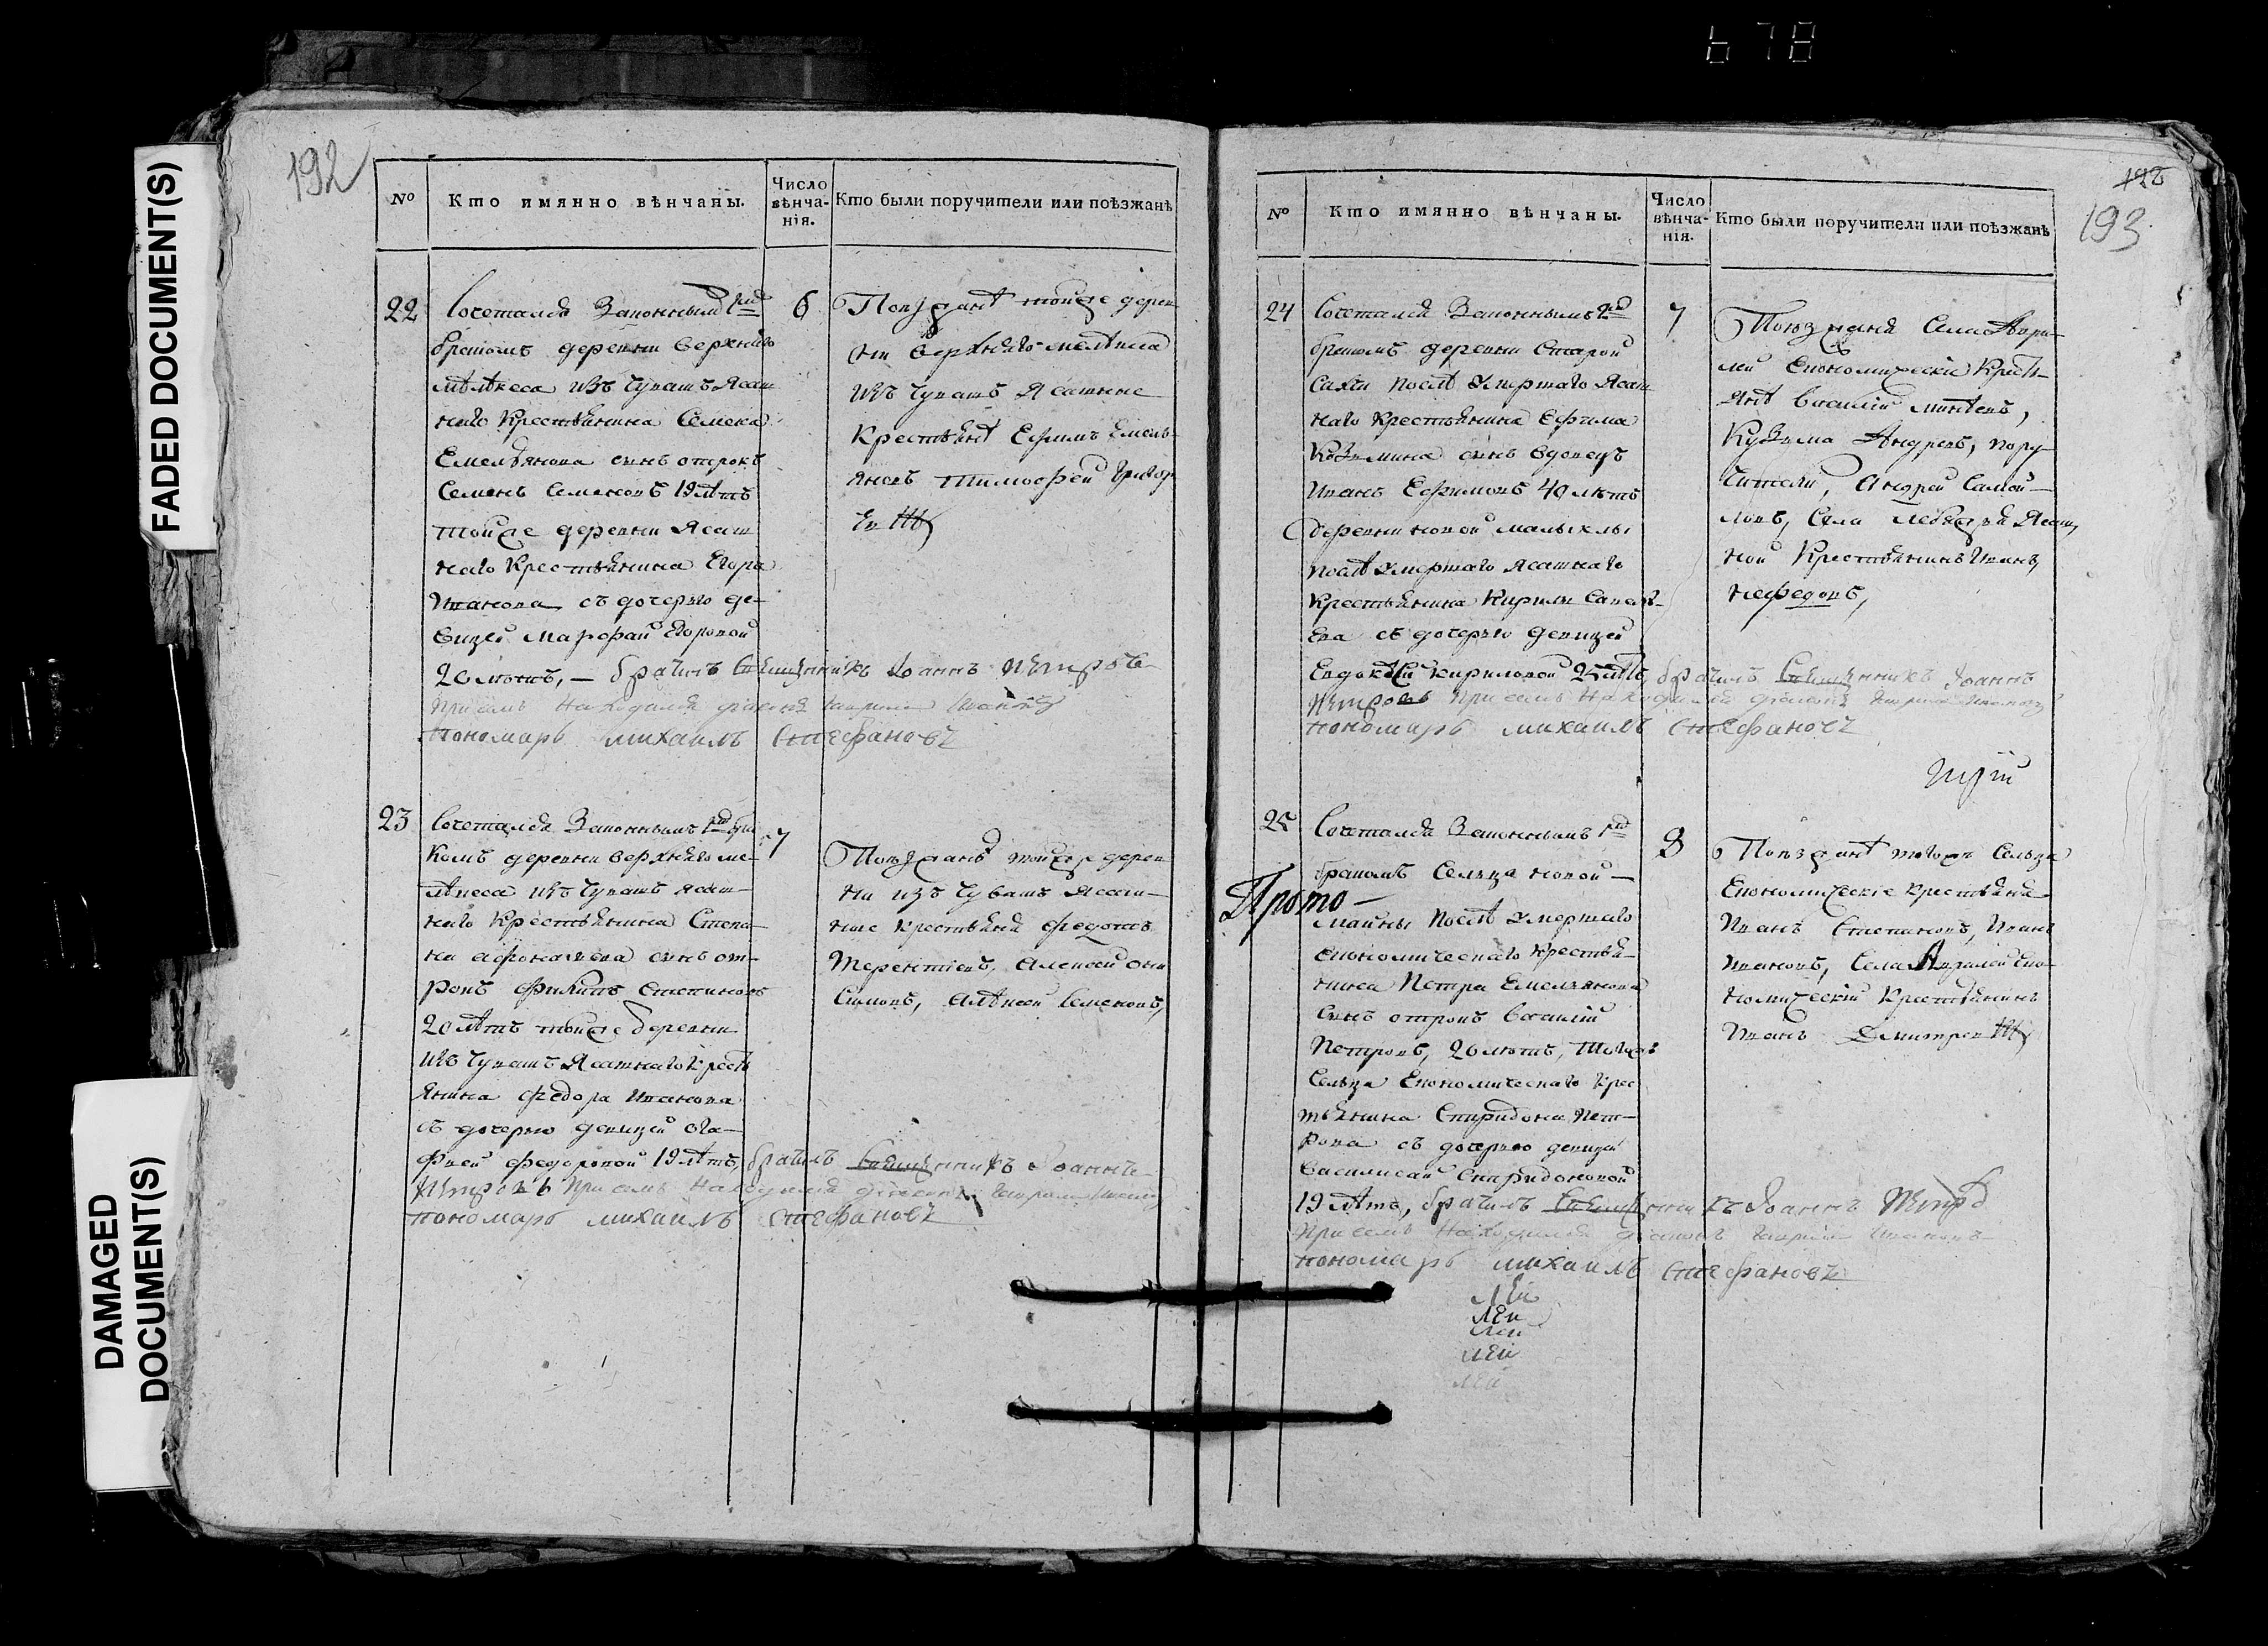 678
FADED DOCUMENT(S)
DAMAGED
DOCUMENT(S)
192
№
Кто имянно вѣнчаны.
Число
вѣнча-
нія.
Кто были поручители или поѣзжанѣ
22
Сочетался Законнымъ 1мъ
бракомъ деревни верхняго
мѣлѣкеса изъ Чувашъ Ясаш
наго Крестьянина Семена
Емельянова сынъ отрокъ
Семенъ Семеновъ 19 лѣтъ
тойже деревни Ясаш
наго Крестьянина Егора
Иванова съ дочерью де-
вицей Марфой Егоровой
20 лѣтъ, – брачилъ Священникъ Іоаннъ Петровъ
При семъ Находился Иванов
пономарь михаилъ Стефановъ
6
Поезжанѣ тойже дерев
ни верхняго мелѣкеса
изъ Чувашъ Ясашные
Крестьянѣ Ефимъ Емель-
яновъ тимофей Григор
ев
23
Сочетался Законнымъ 1мъ бра
комъ деревни верхняго ме-
лѣкеса изъ Чувашъ ясаш-
наго Крестьянина Степа-
на афонасьева сынъ от-
рокъ филипъ Степановъ
20 лѣтъ тойже деревни
изъ Чувашъ Ясашнаго Кресть
янина федора Иванова
съ дочерью девицей ога-
фьей федоровой 19 лѣтъ, брачилъ Священникъ Іоаннъ
Петровъ При семъ Находился
пономарь михаилъ Стефановъ
7
Поезжанѣ тойже дерев
ни изъ Чувашъ Ясаш-
ные Крестьяня федотъ
Терентьевъ, Алексей они
симовъ, Алѣксей Семеновъ,
193
№
Кто имянно вѣнчаны.
Число
вѣнча-
нія.
Кто были поручители или поѣзжанѣ
24
Сочетался Законнымъ 2мъ
бракомъ деревни Старой
Сахчи послѣ умершаго Ясаш
наго Крестьянина Ефима
Козьмина сынъ вдовецъ
Иванъ Ефимовъ 40 лѣтъ
деревни новой малыклы
послѣ умершаго Ясашнаго
Крестьянина Кирилы Савель-
ева съ дочерью девицей
Евдокѣей Кириловой 25 лѣтъ, брачилъ Священникъ Іоаннъ
Петровъ При семъ Находился
пономарь михаилъ Стефановъ
7
Поюзжаня Села
Економическіе Кресть-
янѣ Василий
Кузьма Андревъ, пору
чители, Андрей Самой-
ловъ, Села Ясаш
ной Крестьянинъ Иванъ
нефедовъ,
25
Сочетался Законнымъ 1мъ
бракомъ Сельца новой –
Прото –
майны послѣ умершаго
економическаго крестья-
нина Петра Емельянова
Сынъ отрокъ Василий
Петровъ, 20 лѣтъ, тогожъ
Сельца Економическаго Крес
тьянина Спиридона Пет-
рова съ дочерью девицей
Василисай Спиридоновой
19 лѣтъ, брачилъ Священникъ Іоаннъ Петровъ
При семъ Находился Ивановъ
пономарь михаилъ Стефановъ
лей
лей
лей
лей
лей
8
Поезжанѣ тогожъ Сельца
Економическіе крестьяня
Иванъ Степановъ, Иванъ
Ивановъ, Села Еко-
номическій Крестьянинъ
Иванъ Дмитрев